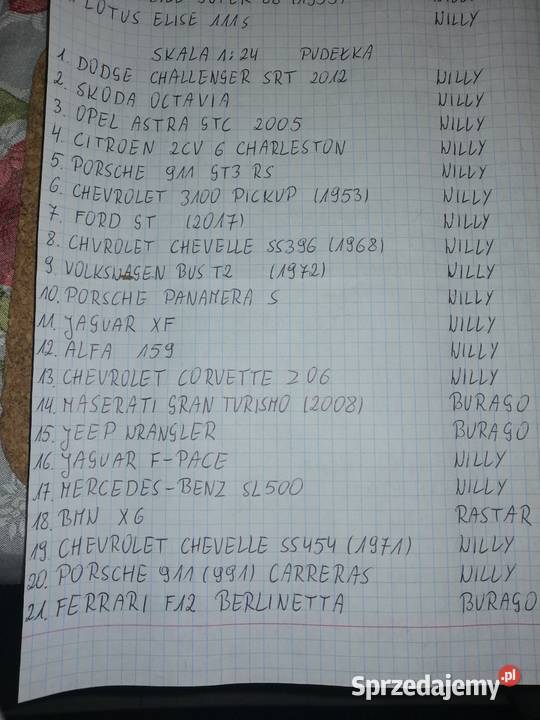 LOTUS ELISE 111S WILLY
SKALA 1:24 PUDEŁKA
1. DODGE CHALLENGER SRT 2012 WILLY
2. SKODA OCTAVIA WILLY
3. OPEL ASTRA GTC 2005 WILLY
4. CITROEN 2CV 6 CHARLESTON WILLY
5. PORSCHE 911 GT3 RS WILLY
6. CHEVROLET 3100 PICKUP (1953) WILLY
7. FORD GT (2017) WILLY
8. CHVROLET CHEVELLE SS396 (1968) WILLY
9. VOLKSWAGEN BUS T2 (1972) WILLY
10. PORSCHE PANAMERA S WILLY
11. JAGUAR XF WILLY
12. ALFA 159 WILLY
13. CHEVROLET CORVETTE Z06 WILLY
14. MASERATI GRAN TURISMO (2008) BURAGO
15. JEEP WRANGLER BURAGO
16. JAGUAR F-PACE WILLY
17. MERCEDES-BENZ SL500 WILLY
18. BMW X6 RASTAR
19. CHEVROLET CHEVELLE SS454 (1971) WILLY
20. PORSCHE 911 (991) CARRERAS WILLY
21. FERRARI F12 BERLINETTA BURAGO
Sprzedajemy.pl